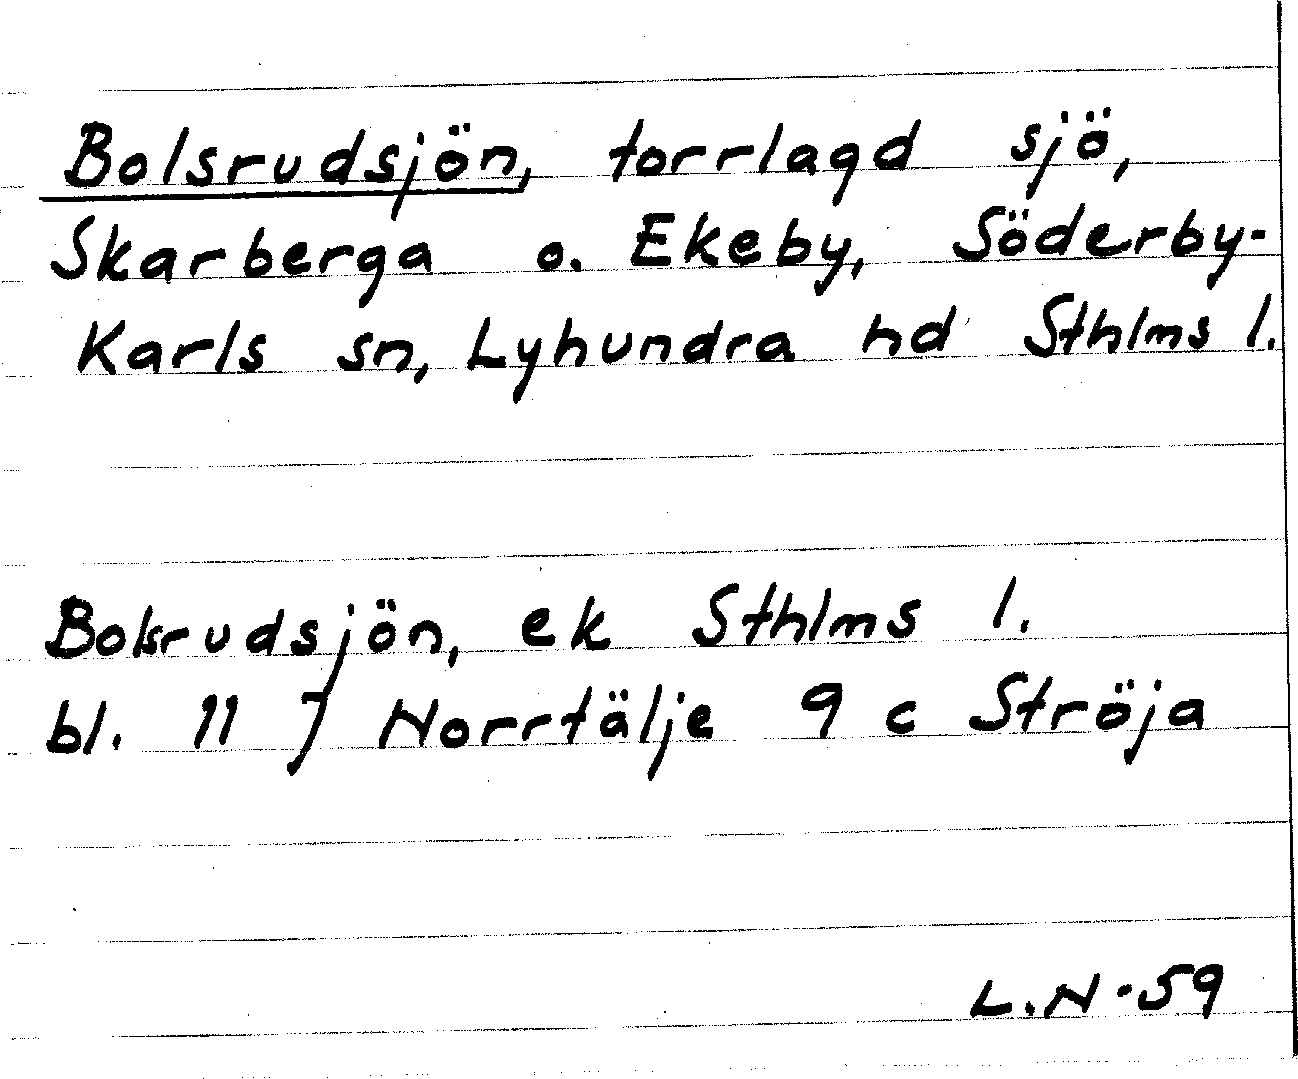 Bolsrudsjön, torrlagd sjö,
Skarberga o. Ekeby, Söderby-
Karls sn, Lyhundra hd Sthlms l.
Bolsrudsjön, ek Sthlms l.
bl. 11 J Norrtälje 9 c Ströja
L.N-59